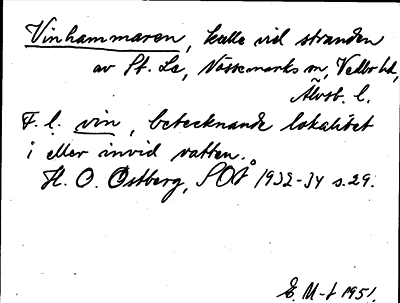 Vinhammaren, kalle vid stranden
av St. Le, Nössemarks sn, Vedbo hd,
Älvsb. l.
F. l. vin, betecknande lokalitet
i eller invid vatten.
H. O. Östberg, SOÅ 1932-34 s. 29.
E. M-t 1951.